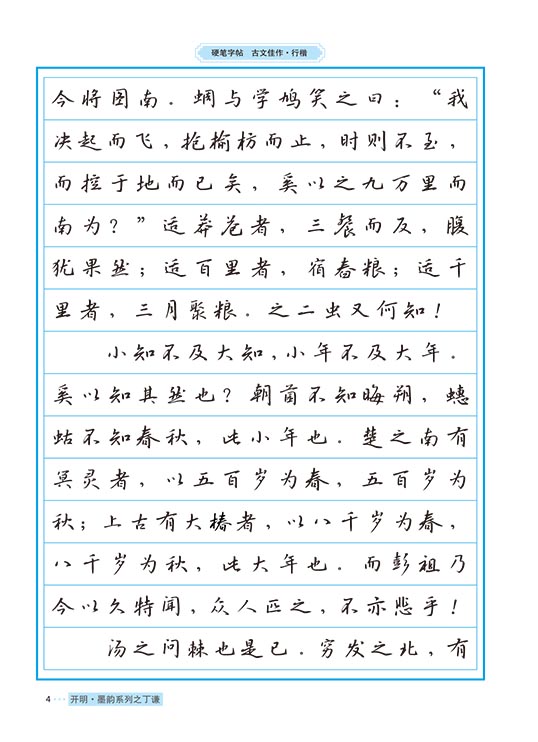 硬笔字帖 古文佳作·行楷
今将图南．蜩与学鸠笑之曰：“我
决起而飞，抢榆枋而止，时则不至，
而控于地而已矣，奚以之九万里而
南为？”适莽苍者，三餐而反，腹
犹果然；适百里者，宿舂粮；适千
里者，三月聚粮．之二虫又何知！
小知不及大知，小年不及大年．
奚以知其然也？朝菌不知晦朔，蟪
蛄不知春秋，此小年也．楚之南有
冥灵者，以五百岁为春，五百岁为
秋；上古有大椿者，以八千岁为春，
八千岁为秋，此大年也．而彭祖乃
今以久特闻，众人匹之，不亦悲乎！
汤之问棘也是已．穷发之北，有
4 ··· 开明·墨韵系列之丁谦